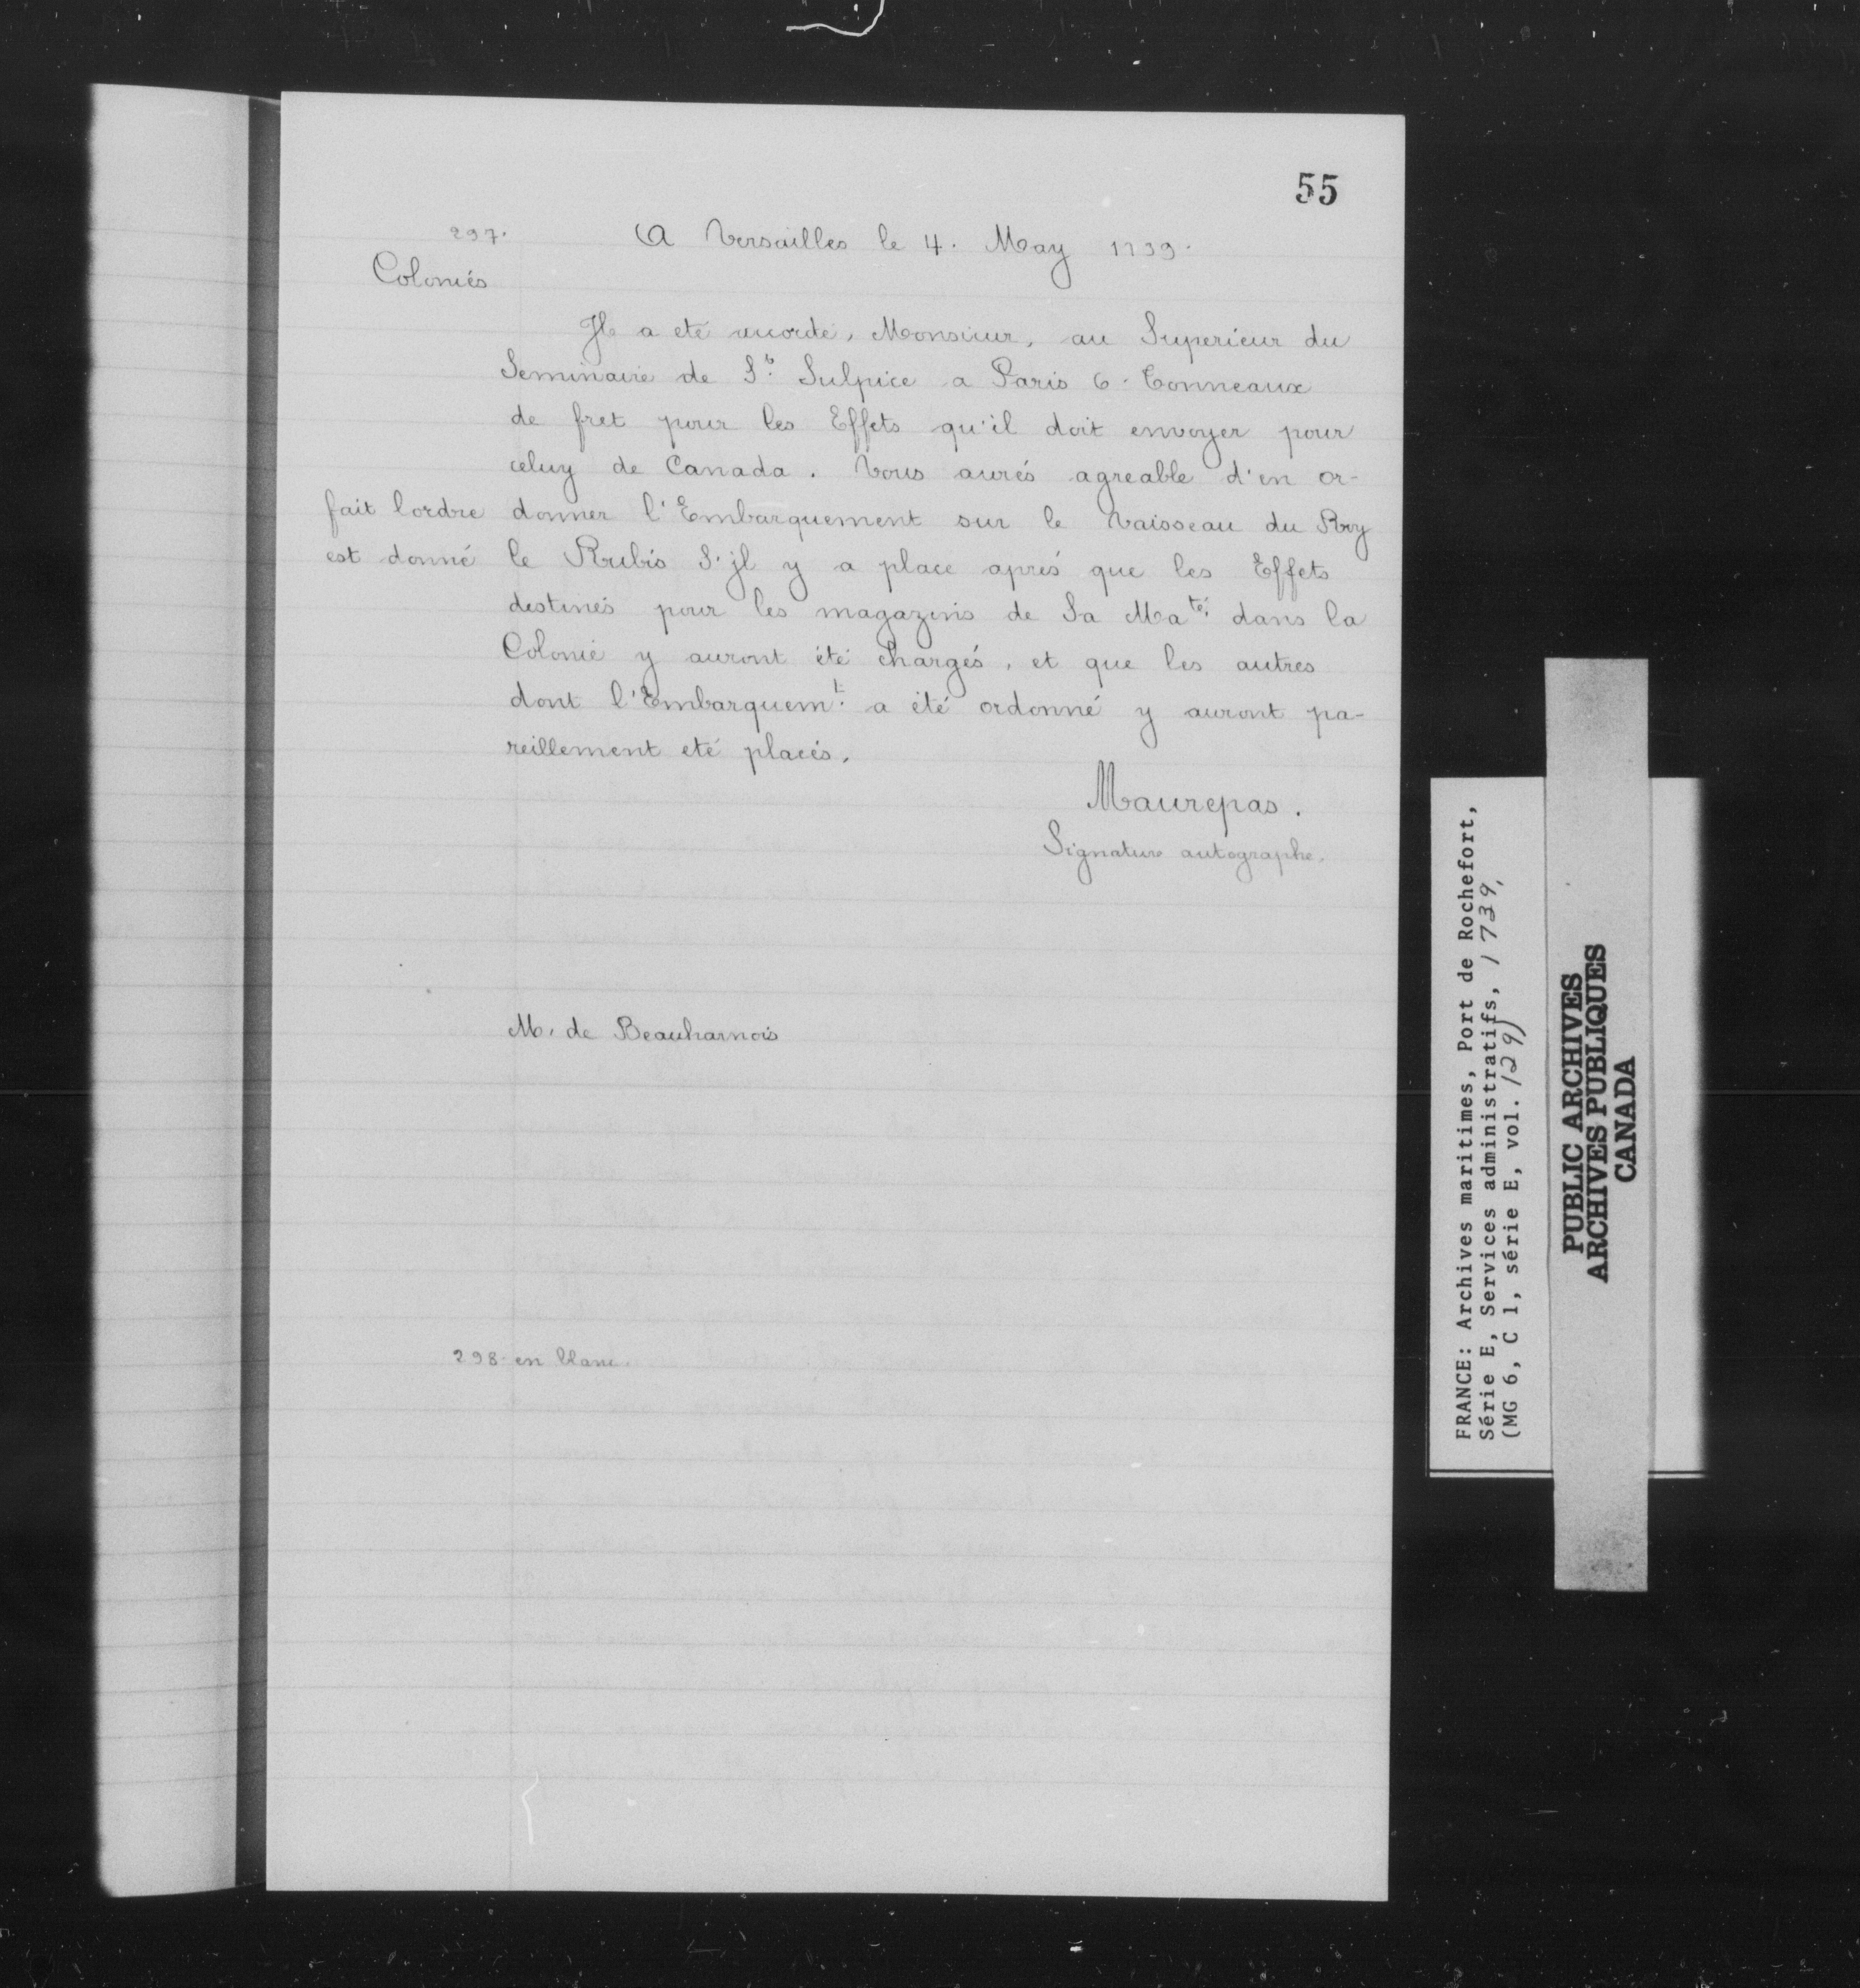 55
297.
A Versailles le 4. May 1739.
Coloniés
Jl a eté accordé, Monsieur, au Superieur du
Seminaire de St. Sulpice a Paris 6. Tonneaux
de fret pour les Effets qu'il doit envoyer pour
celuy de Canada. Vous aurés agreable d'en or-
fait lordre
donner l'Embarquement sur le Vaisseau du Roy
est donné
le Rubis S'jl y a place aprés que les Effets
destinés pour les magazins de Sa Maté. dans la
Colonie y auront été chargés, et que les autres
dont l'Embarquemt. a été ordonné y auront pa-
reillement eté placés.
Maurepas.
Signature autographe.
M. de Beauharnois
298. en blanc.
FRANCE: Archives maritimes, Port de Rochefort,
Série E, Services administratifs, 1739,
(MG 6, C 1, série E, vol. 129)
PUBLIC ARCHIVES
ARCHIVES PUBLIQUES
CANADA